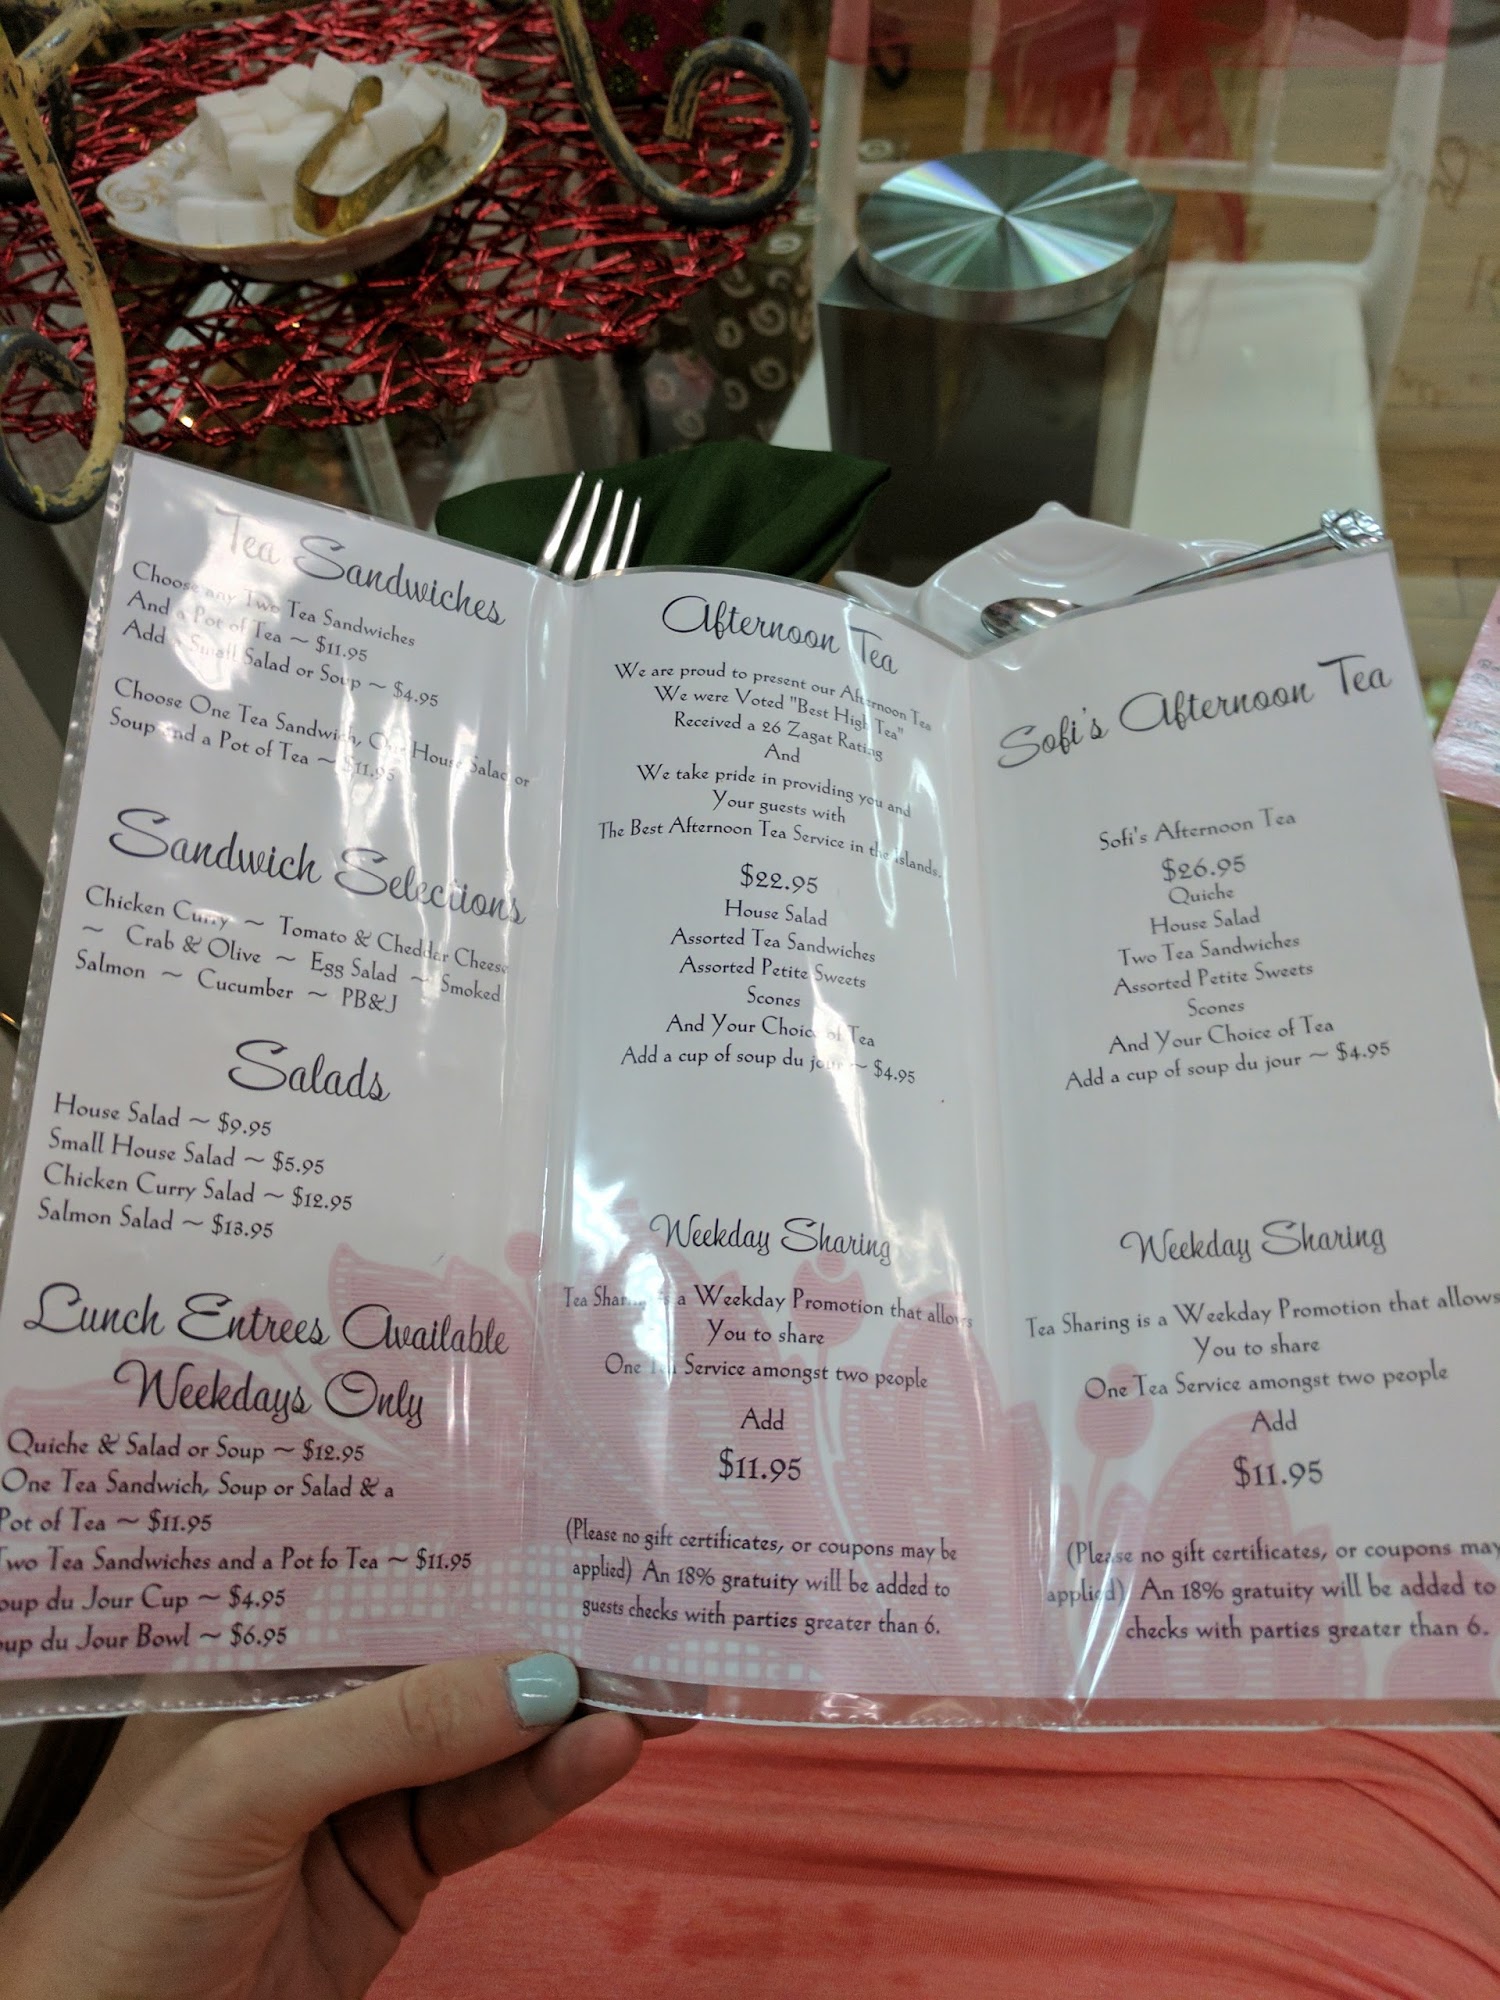 Tea Sandwiches
Choose any Two Tea Sandwiches
And a Pot of Tea ~ $11.95
Add a Small Salad or Soup ~ $4.95
Choose One Tea Sandwich, Our House Salad or
Soup and a Pot of Tea ~ $11.95
Sandwich Selections
Chicken Curry ~ Tomato & Cheddar Cheese
~ Crab & Olive ~ Egg Salad ~ Smoked
Salmon ~ Cucumber ~ PB&J
Salads
House Salad ~ $9.95
Small House Salad ~ $5.95
Chicken Curry Salad ~ $12.95
Salmon Salad ~ $13.95
Lunch Entrees Available
Weekdays Only
Quiche & Salad or Soup ~ $12.95
One Tea Sandwich, Soup or Salad & a
Pot of Tea ~ $11.95
Two Tea Sandwiches and a Pot fo Tea ~ $11.95
oup du Jour Cup ~ $4.95
oup du Jour Bowl ~ $6.95
Afternoon Tea
We are proud to present our Afternoon Tea
We were Voted "Best High Tea"
Received a 26 Zagat Rating
And
We take pride in providing you and
Your guests with
The Best Afternoon Tea Service in the Islands.
$22.95
House Salad
Assorted Tea Sandwiches
Assorted Petite Sweets
Scones
And Your Choice of Tea
Add a cup of soup du jour ~ $4.95
Weekday Sharing
Tea Sharing is a Weekday Promotion that allows
You to share
One Tea Service amongst two people
Add
$11.95
(Please no gift certificates, or coupons may be
applied) An 18% gratuity will be added to
guests checks with parties greater than 6.
Sofi's Afternoon Tea
Sofi's Afternoon Tea
$26.95
Quiche
House Salad
Two Tea Sandwiches
Assorted Petite Sweets
Scones
And Your Choice of Tea
Add a cup of soup du jour ~ $4.95
Weekday Sharing
Tea Sharing is a Weekday Promotion that allows
You to share
One Tea Service amongst two people
Add
$11.95
(Please no gift certificates, or coupons may
applied) An 18% gratuity will be added to
checks with parties greater than 6.